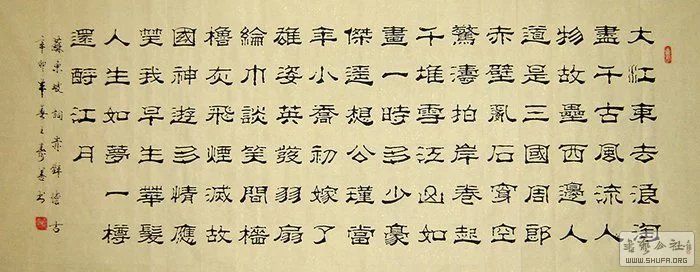 大江東去浪淘
盡千古風流人
物故壘西邊人
道是三國周郎
赤壁亂石穿空
驚濤拍岸卷起
千堆雪江山如
畫一時多少豪
傑遥想公瑾當
年小喬初嫁了
雄姿英發羽扇
綸巾談笑間檣
櫓灰飛煙滅故
國神遊多情應
笑我早生華髮
人生如夢一樽
還酹江月
蘇東坡詞赤壁懷古
辛卯年春王
WWW.SHUFA.ORG